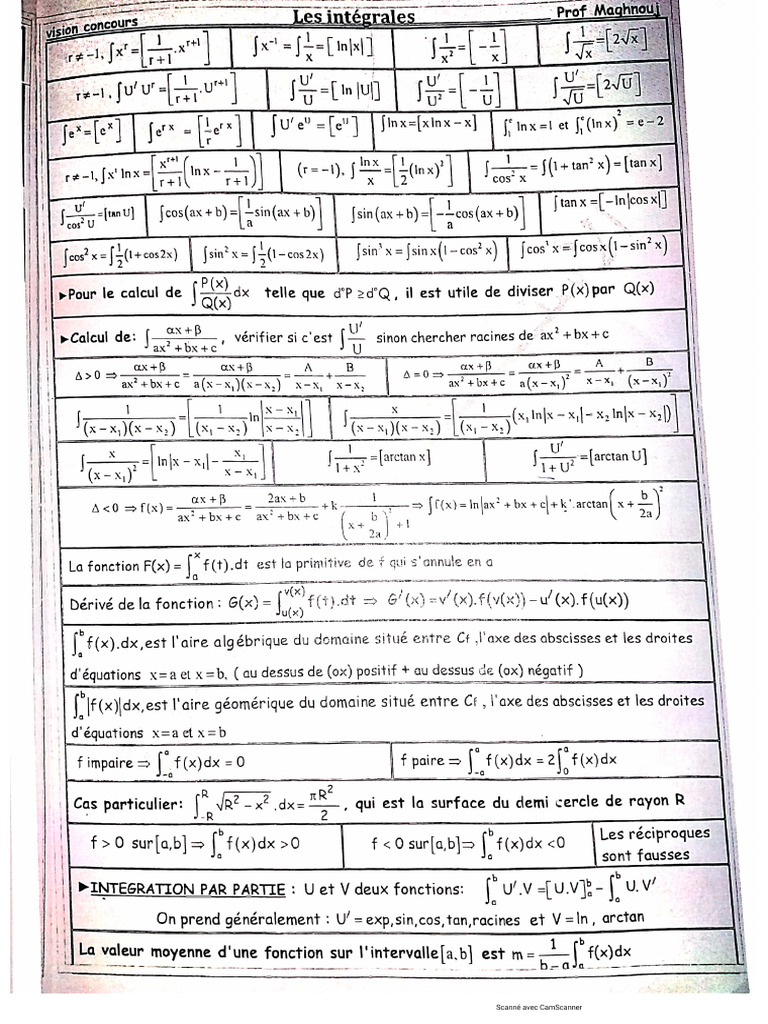 vision concours
Les intégrales
Prof Maghnouj
r≠-1, ∫x^r=[1/(r+1).x^(r+1)]
∫x^-1=∫1/x=[ln|x|]
∫1/x²=[-1/x]
∫1/√x=[2√x]
r≠-1, ∫U' U^r=[1/(r+1).U^(r+1)]
∫U'/U=[ln|U|]
∫U'/U²=[-1/U]
∫U'/√U=[2√U]
∫e^x=[e^x]
∫e^(rx)=[1/r e^(rx)]
∫U'e^U=[e^U]
∫ln x=[x ln x-x]
∫₁^e ln x=1 et ∫₁^e(ln x)²=e-2
r≠-1, ∫x^r ln x=[x^(r+1)/(r+1)(ln x-1/(r+1))]
(r=-1), ∫ln x/x=[1/2(ln x)²]
∫1/cos²x=∫(1+tan²x)=[tan x]
∫U'/cos²U=[tan U]
∫cos(ax+b)=[1/a sin(ax+b)]
∫sin(ax+b)=[-1/a cos(ax+b)]
∫tan x=[-ln|cos x|]
∫cos²x=∫1/2(1+cos2x)
∫sin²x=∫1/2(1-cos2x)
∫sin³x=∫sin x(1-cos²x)
∫cos³x=∫cos x(1-sin²x)
►Pour le calcul de ∫P(x)/Q(x)dx telle que d°P≥d°Q, il est utile de diviser P(x) par Q(x)
►Calcul de: ∫(αx+β)/(ax²+bx+c), vérifier si c'est ∫U'/U sinon chercher racines de ax²+bx+c
Δ>0 ⇒ (αx+β)/(ax²+bx+c)=(αx+β)/(a(x-x₁)(x-x₂))=A/(x-x₁)+B/(x-x₂)
Δ=0 ⇒ (αx+β)/(ax²+bx+c)=(αx+β)/(a(x-x₁)²)=A/(x-x₁)+B/(x-x₁)²
∫1/((x-x₁)(x-x₂))=[1/(x₁-x₂) ln|(x-x₁)/(x-x₂)|]
∫x/((x-x₁)(x-x₂))=[1/(x₁-x₂)(x₁ln|x-x₁|-x₂ln|x-x₂|)]
∫x/(x-x₁)²=[ln|x-x₁|-x₁/(x-x₁)]
∫1/(1+x²)=[arctan x]
∫U'/(1+U²)=[arctan U]
Δ<0 ⇒ f(x)=(αx+β)/(ax²+bx+c)=(2ax+b)/(ax²+bx+c)+k.1/((x+b/2a)²+1) ⇒ ∫f(x)=ln|ax²+bx+c|+k'.arctan(x+b/2a)²
La fonction F(x)=∫ₐ^x f(t).dt est la primitive de f qui s'annule en a
Dérivé de la fonction : G(x)=∫_u(x)^v(x) f(t).dt ⇒ G'(x)=v'(x).f(v(x))-u'(x).f(u(x))
∫ₐ^b f(x).dx,est l'aire algébrique du domaine situé entre Cf ,l'axe des abscisses et les droites
d'équations x=a et x=b. ( au dessus de (ox) positif + au dessus de (ox) négatif )
∫ₐ^b|f(x)|dx,est l'aire géomérique du domaine situé entre Cf , l'axe des abscisses et les droites
d'équations x=a et x=b
f impaire ⇒ ∫₋ₐ^a f(x)dx = 0
f paire ⇒ ∫₋ₐ^a f(x)dx = 2∫₀^a f(x)dx
Cas particulier: ∫_-R^R √(R²-x²).dx=πR²/2 , qui est la surface du demi cercle de rayon R
f>0 sur[a,b] ⇒ ∫ₐ^b f(x)dx >0
f<0 sur[a,b] ⇒ ∫ₐ^b f(x)dx <0
Les réciproques
sont fausses
►INTEGRATION PAR PARTIE : U et V deux fonctions: ∫ₐ^b U'.V =[U.V]ₐ^b-∫ₐ^b U.V'
On prend généralement : U'=exp,sin,cos,tan,racines et V=ln , arctan
La valeur moyenne d'une fonction sur l'intervalle[a,b] est m=1/(b-a)∫ₐ^b f(x)dx
Scanné avec CamScanner